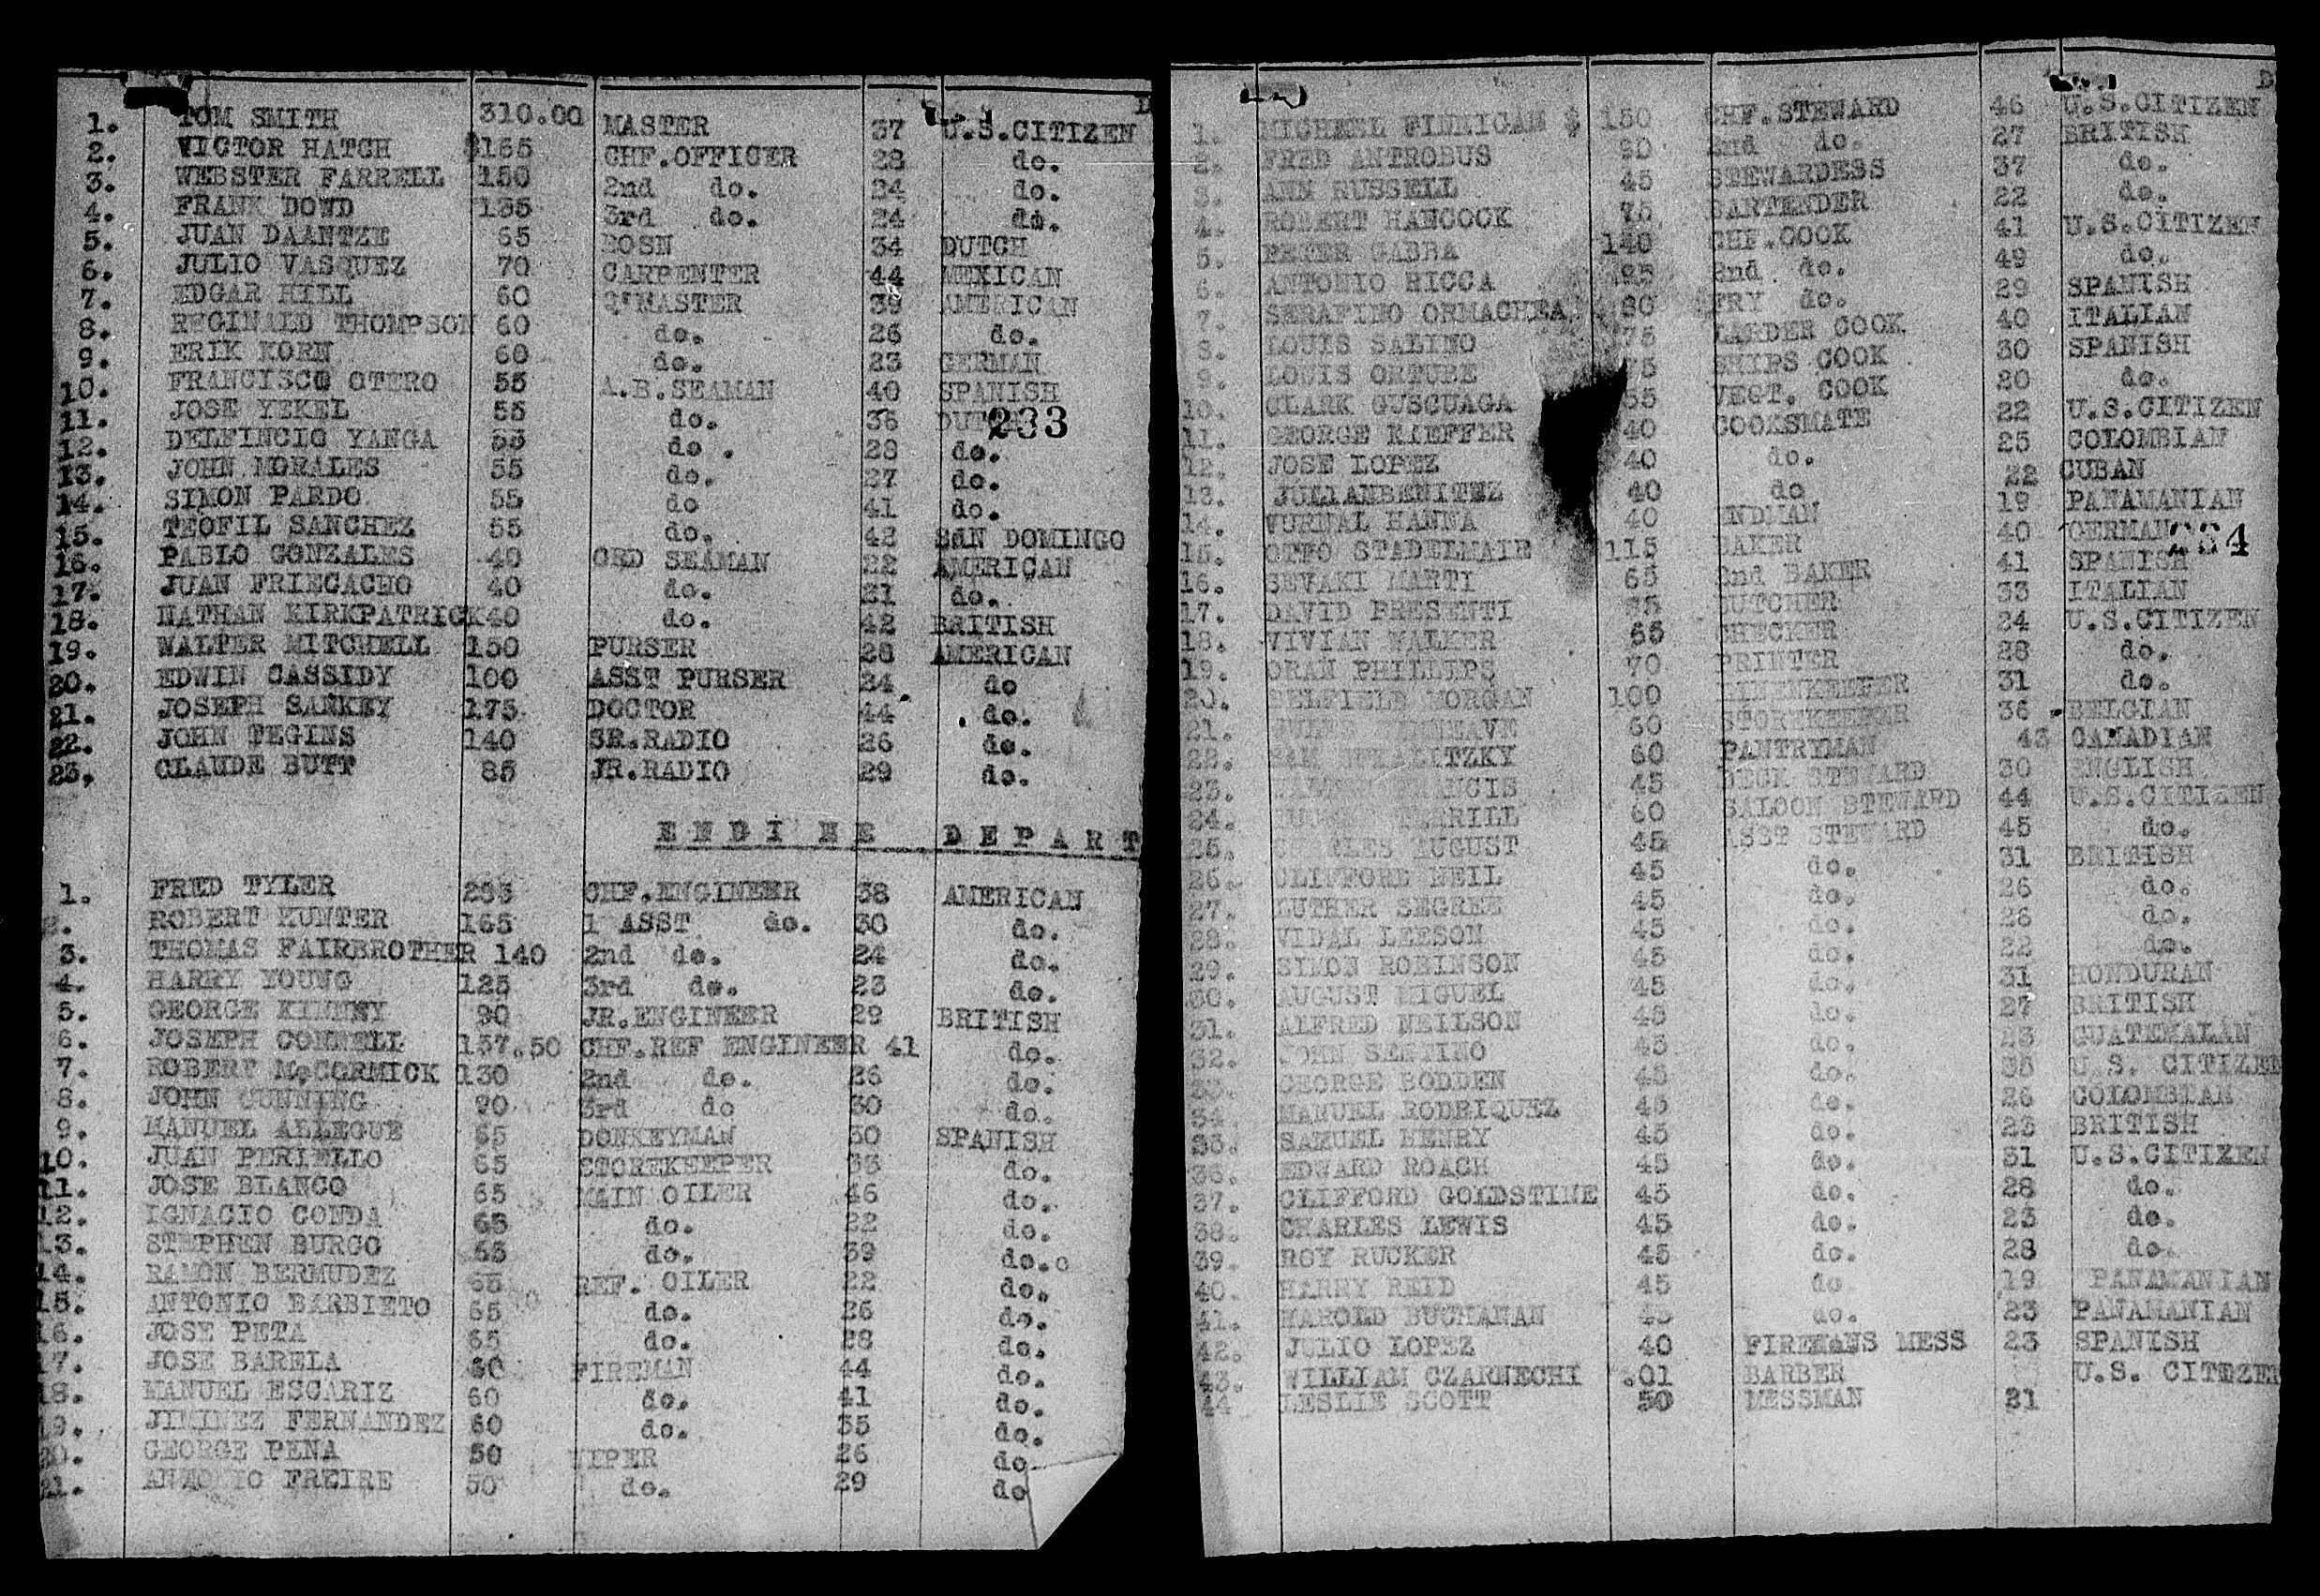 1. TOM SMITH 310.00 MASTER 37 U.S.CITIZEN
2. VICTOR HATCH $165 CHF.OFFICER 28 do.
3. WEBSTER FARRELL 150 2nd do. 24 do.
4. FRANK DOWD 135 3rd do. 24 do.
5. JUAN DAANTZE 65 BOSN 34 DUTCH
6. JULIO VASQUEZ 70 CARPENTER 44 MEXICAN
7. EDGAR HILL 60 Q'MASTER 39 AMERICAN
8. REGINALD THOMPSON 60 do. 26 do.
9. ERIK KORN 60 do. 23 GERMAN
10. FRANCISCO OTERO 55 A.B.SEAMAN 40 SPANISH
11. JOSE YEKEL 55 do. 36 DUTCH
233
12. DELFINCIO YANGA 55 do. 28 do.
13. JOHN MORALES 55 do. 27 do.
14. SIMON PARDO 55 do 41 do.
15. TEOFIL SANCHEZ 55 do. 42 SAN DOMINGO
16. PABLO GONZALES 40 ORD SEAMAN 22 AMERICAN
17. JUAN FRIEGACHO 40 do. 21 do.
18. NATHAN KIRKPATRICK 40 do. 42 BRITISH
19. WALTER MITCHELL 150 PURSER 28 AMERICAN
20. EDWIN CASSIDY 100 ASST PURSER 24 do
21. JOSEPH SANKEY 175 DOCTOR 44 do.
22. JOHN TEGINS 140 SR.RADIO 26 do.
23. CLAUDE BUTT 85 JR.RADIO 29 do.
ENGINE DEPART
1. FRED TYLER CHF.ENGINEER 38 AMERICAN
2. ROBERT HUNTER 165 1 ASST do. 30 do.
3. THOMAS FAIRBROTHER 140 2nd do. 24 do.
4. HARRY YOUNG 125 3rd do. 23 do.
5. GEORGE KINNEY 90 JR.ENGINEER 29 BRITISH
6. JOSEPH CONNELL 157.50 CHF.REF ENGINEER 41 do.
7. ROBERT McCORMICK 130 2nd do. 26 do.
8. JOHN GUNNING 90 3rd do 30 do.
9. MANUEL ALLEGUE 65 DONKEYMAN 30 SPANISH
10. JUAN PERIELLO 65 STOREKEEPER 33 do.
11. JOSE BLANCO 65 MAIN OILER 46 do.
12. IGNACIO CONDA 65 do. 22 do.
13. STEPHEN BURGO 65 do. 39 do.
14. RAMON BERMUDEZ 65 REF. OILER 22 do.
15. ANTONIO BARBIETO 65 do. 26 do.
16. JOSE PETA 65 do. 28 do.
17. JOSE BARELA 60 FIREMAN 44 do.
18. MANUEL ESCARIZ 60 do. 41 do.
19. JIMINEZ FERNANDEZ 60 do. 35 do.
20. GEORGE PENA 50 WIPER 26 do
21. ANTONIO FREIRE 50 do. 29 do
1. MICHEEL FINNIGAN $ 150 CHF.STEWARD 46 U.S.CITIZEN
2. FRED ANTROBUS 90 2nd do. 27 BRITISH
3. ANN RUSSELL 45 STEWARDESS 37 do.
4. ROBERT HANCOCK 75 BARTENDER 22 do.
5. PETER GABBA 140 CHF.COOK 41 U.S.CITIZEN
6. ANTONIO RICCA 2nd do. 49 do.
7. SERAFINO ORMACHEA 80 FRY do. 29 SPANISH
8. LOUIS SALINO 75 LARDER COOK 40 ITALIAN
9. LOUIS ORTUBE 75 SHIPS COOK 30 SPANISH
10. CLARK GUSCUAGA 55 VEGT. COOK 20 do.
11. GEORGE KIEFFER 40 COOKSMATE 22 U.S.CITIZEN
12. JOSE LOPEZ 40 do. 25 COLOMBIAN
13. JULIANBENITEZ 40 do 22 CUBAN
14. VURNAL HANNA 40 ENDMAN 19 PANAMANIAN
15. OTTO STADELMAIE 115 BAKER 40 GERMAN
234
16. SEVAKI MARTI 65 2nd BAKER 41 SPANISH
17. DAVID PRESENTI BUTCHER 33 ITALIAN
18. VIVIAN WALKER 65 CHECKER 24 U.S.CITIZEN
19. ORAN PHILLIPS 70 PRINTER 28 do.
20. BELFIELD MORGAN 100 LINENKEEPER 31 do.
21. 60 STOREKEEPER 36 BELGIAN
22. SAM 60 PANTRYMAN 43 CANADIAN
23. WALTER FRANCIS 45 DECK STEWARD 30 ENGLISH
24. TERRILL 60 SALOON STEWARD 44 U.S.CITIZEN
25. CHARLES AUGUST 45 ASST STEWARD 45 do.
26. CLIFFORD NEIL 45 do. 31 BRITISH
27. LUTHER SEGREE 45 do. 26 do.
28. VIDAL LEESON 45 do. 26 do.
29. SIMON ROBINSON 45 do. 22 do.
30. AUGUST MIGUEL 45 do. 31 HONDURAN
31. ALFRED NEILSON 45 do. 27 BRITISH
32. JOHN SENTINO 45 do. 23 GUATEMALAN
33. GEORGE BODDEN 45 do. 35 U.S. CITIZEN
34. MANUEL RODRIQUEZ 45 do. 26 COLOMBIAN
35. SAMUEL HENRY 45 do. 23 BRITISH
36. EDWARD ROACH 45 do. 31 U.S.CITIZEN
37. CLIFFORD GOLDSTINE 45 do. 28 do.
38. CHARLES LEWIS 45 do. 23 do.
39. ROY RUCKER 45 do. 28 do.
40. HARRY REID 45 do 19 PANAMANIAN
41. HAROLD BUCHANAN 45 do. 23 PANAMANIAN
42. JULIO LOPEZ 40 FIREMANS MESS 23 SPANISH
43. WILLIAM CZARNECHI .01 BARBER U.S. CITIZEN
44 LESLIE SCOTT 50 MESSMAN 21